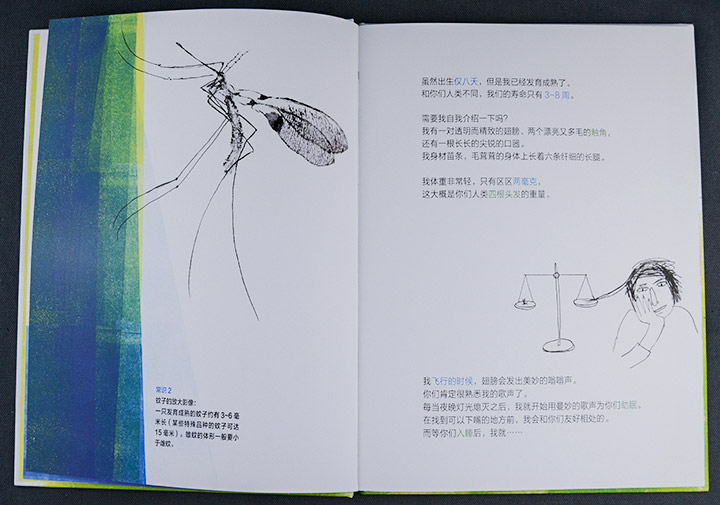 常识 2
蚊子的放大影像：
一只发育成熟的蚊子约有 3~6 毫
米长（某些特殊品种的蚊子可达
15 毫米）。雄蚊的体形一般要小
于雌蚊。
虽然出生仅八天，但是我已经发育成熟了。
和你们人类不同，我们的寿命只有 3~8 周。
需要我自我介绍一下吗？
我有一对透明而精致的翅膀，两个漂亮又多毛的触角，
还有一根长长的尖锐的口器。
我身材苗条，毛茸茸的身体上长着六条纤细的长腿。
我体重非常轻，只有区区两毫克，
这大概是你们人类四根头发的重量。
我飞行的时候，翅膀会发出美妙的嗡嗡声。
你们肯定很熟悉我的歌声了。
每当夜晚灯光熄灭之后，我就开始用曼妙的歌声为你们助眠。
在找到可以下嘴的地方前，我会和你们友好相处的。
而等你们入睡后，我就……